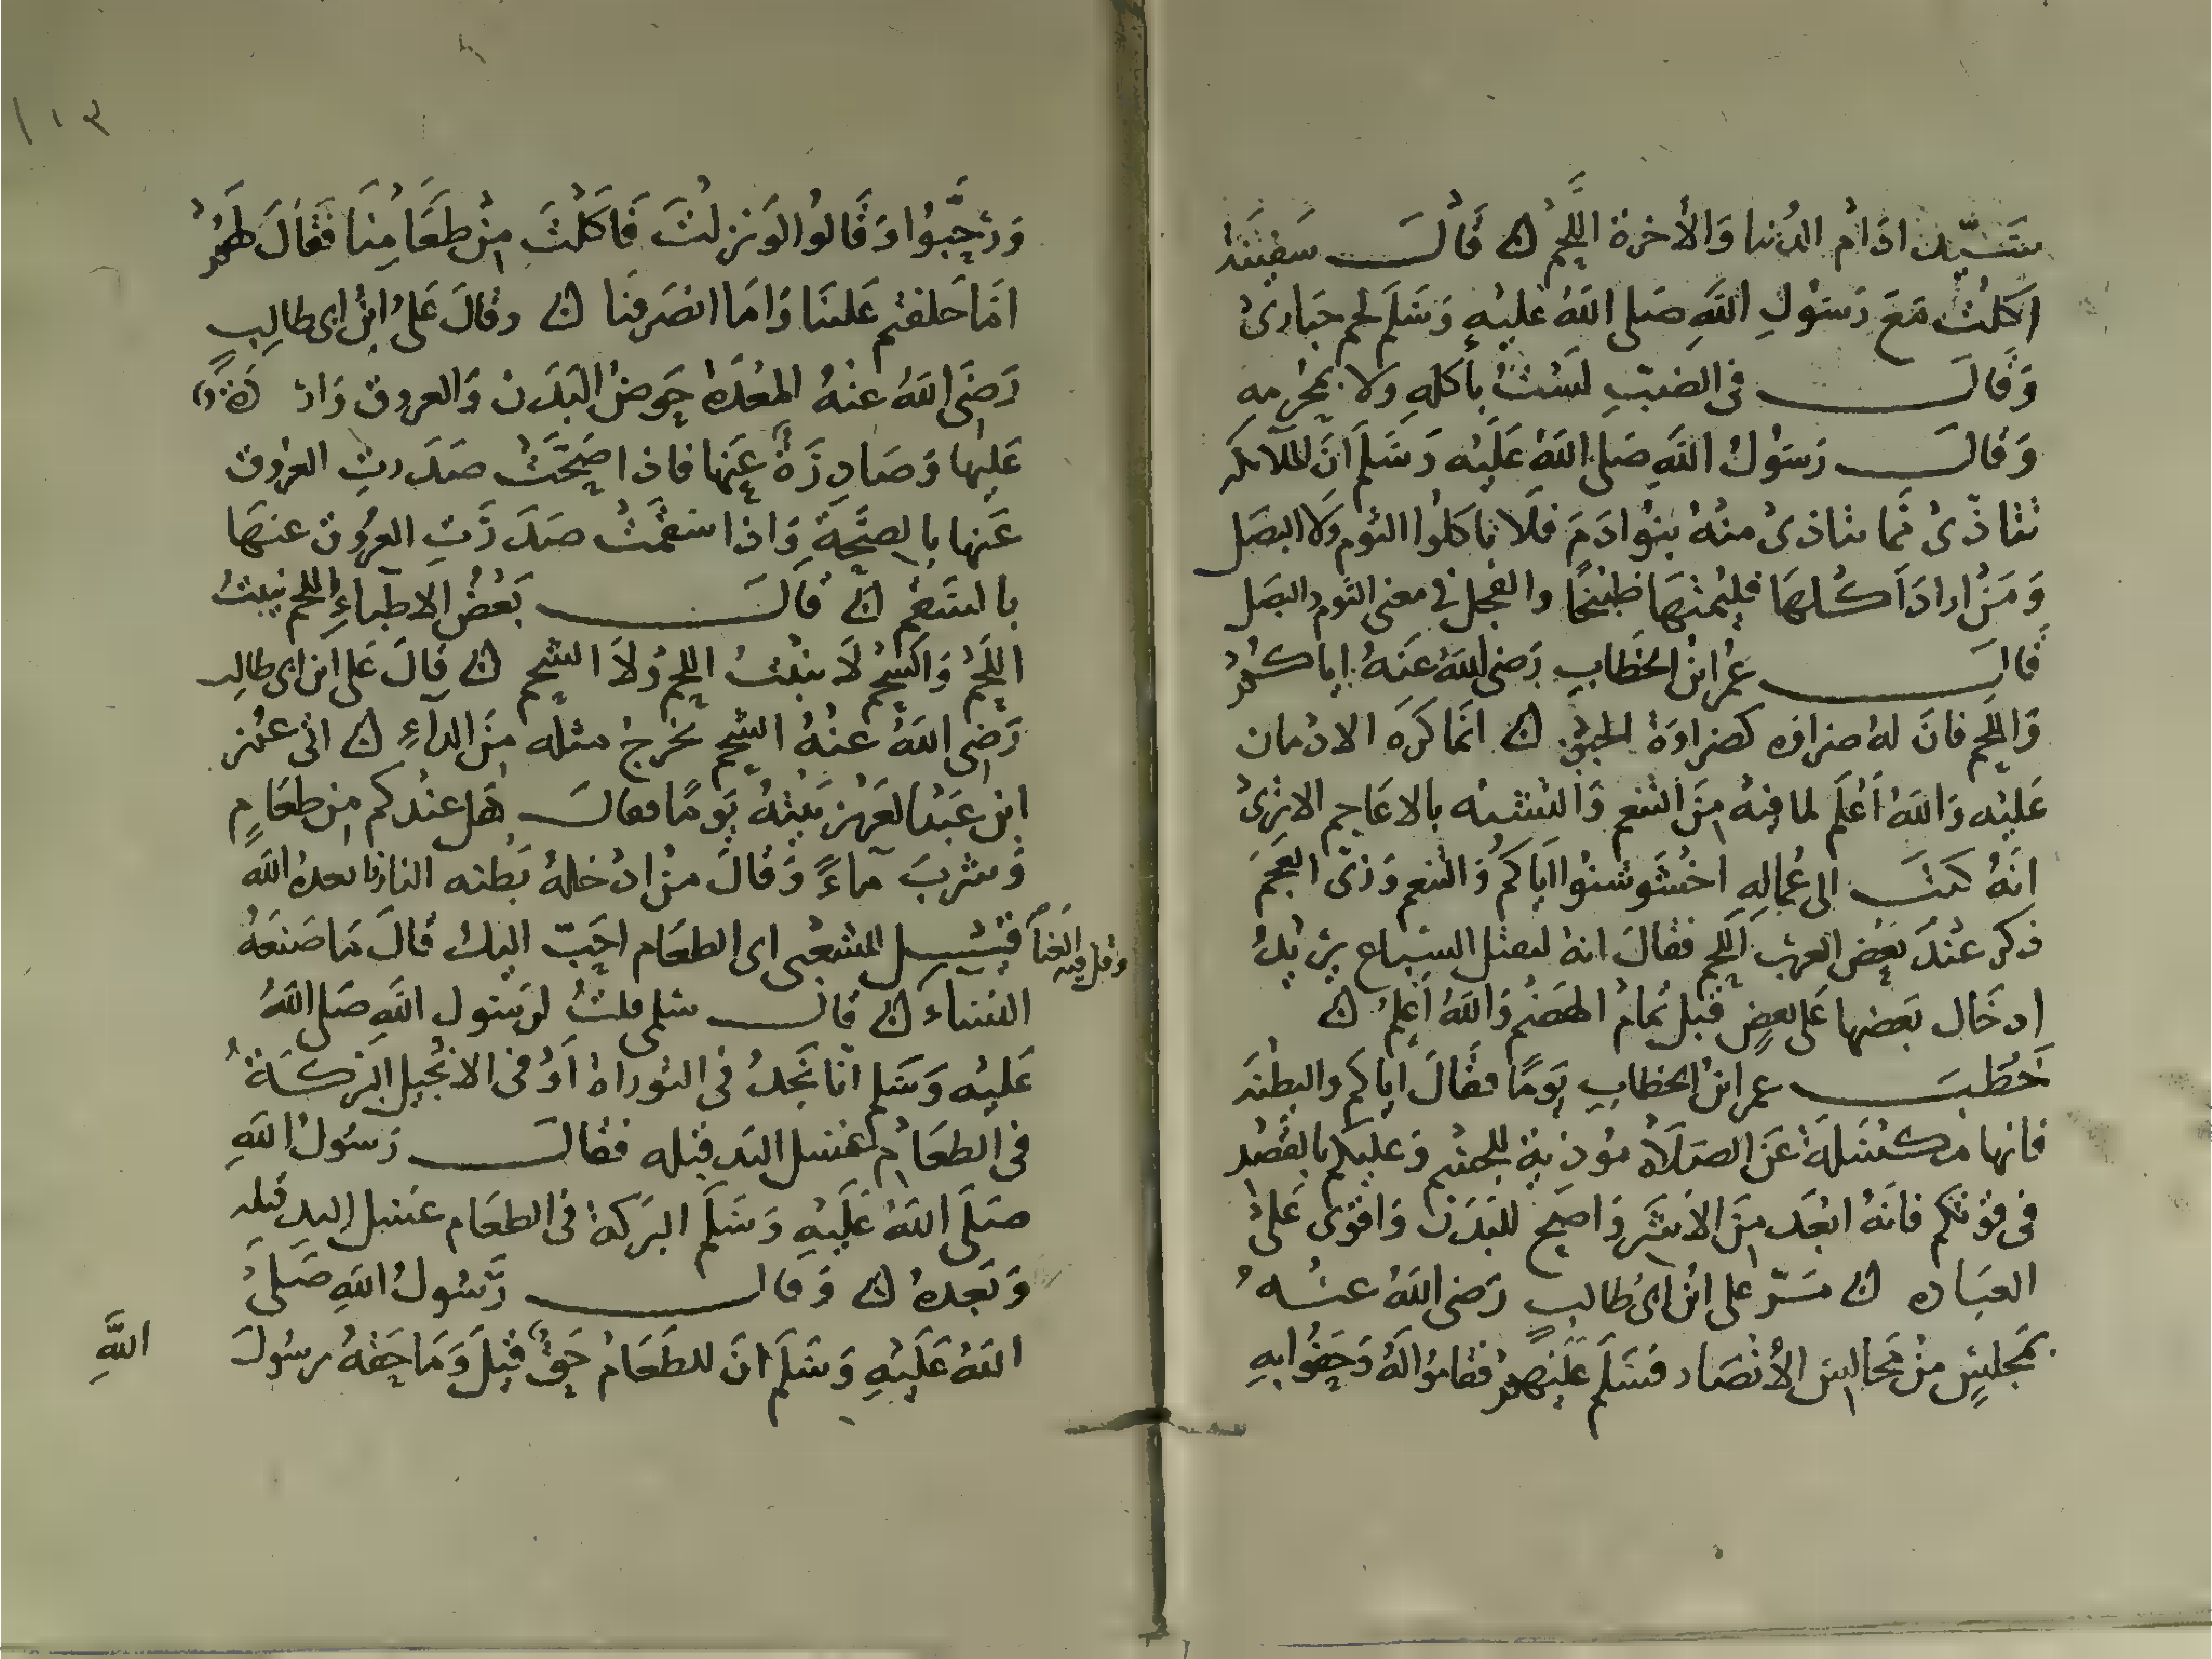 سَيّد ادَام الدُنيا وَالأخرة اللَّحم ۞ قَالَ سَفينَة
اكلت مَعَ رَسُولِ اللَّهِ صَلى اللَّهُ عَليهِ وَسَلم لحم حبَارىٰ
وَقالَ فى الضبّ لسْتُ بأكلهِ ولا بمُحرمهِ
وَقالَ رَسُولُ اللَّهِ صَلى اللَّهُ عَلَيْه وَسَلم انَ الملائكه
تتاذّى مما يتاذى منهُ بنوا ادَمَ فلَا تاكلوا الثوم ولا البصَل
وَمَنْ ارادَ اَكلهَا فليُمتهَا طبخًا والفجل فى معنى الثوم والبصَل
قالَ عمر ابن الخطابِ رَضى اللَّهُ عَنهُ اياكم
وَاللحم فانَ لهُ ضراوه كضراوَة الخمر ۞ انما كرَه الادمان
عَليه وَاللَّهُ اَعْلَم لما فيهُ مِنَ التنعم وَالتشبه بالاعَاجم الاترىٰ
انهُ كتبَ الى عمالهِ اخشَوشنوا ايَاكم وَالتنعم وَزىّ العَجَم
ذكر عنْدَ بعض العرب اللحم فقالَ انهُ ليقتل السباع يريْدُ
ادخَال بَعضها عَلى بعضٍ قبل تمامُ الهضم وَاللَّهُ اَعلم ۞
خَطبَ عمر ابن الخطابِ يَومًا فقَالَ اياكم والبطنَه
فانها مكسَلة عَن الصَلَاة مؤذية للجسْم وَعليكم بالقصْد
فى قوتكم فانهُ ابعَد مِنَ الأشَر وَاصَح للبَدَن وَاقوى عَلىٰ
العبَاده ۞ مَرّ على ابن ابى طالبٍ رَضى اللَّهُ عنْهُ
بمجلسٍ منْ مجَالس الأنصَار فسَلم عَلَيْهم فقاموا لَهُ وَحَفوا بهِ
وَرَحَّبوا وَقَالوا لوَنزلتَ فَاكلتَ مِنْ طَعَامِنَا فقَالَ لهم
امَا حَلفتم عَلينَا وَامَا انصَرفنا ۞ وقالَ عَلى ابن ابى طالبٍ
رَضىَ اللَّهُ عنهُ المعْدَة حوضُ البَدَن وَالعروق وَاردَة
عَليها وَصَادِرَةٌ عَنها فاذا صَحَّتْ صَدَرت العرُوق
عَنها بالصحَّةِ وَاذا سَقمتْ صَدَرَتِ العرُوق عنهَا
بالسَقم ۞ قالَ بَعْضُ الاطباءِ اللحم ينبتُ
اللَّحم وَالشحُم لَا ينبتُ اللحم وَلَا الشحم ۞ قالَ عَلى ابن ابى طالب
رَضى اللَّهُ عنْهُ الشحم يخرجُ مثله مِنَ الداءِ ۞ اتى عمر
ابن عَبْدالعَزيز بَيتهُ يَومًا فقالَ هَل عندكم من طعَامٍ
وَشربَ ماءً وَقالَ منْ ادْخلهُ بَطنه النار فابعده اللَّه
قيْلَ للشعبى اى الطعَام احَبّ اليك قالَ مَا صَنعَهُ
النسَاء وقل فيه الغنَا ۞ قالَ سَلمى قلتُ لرَسُولِ اللَّهِ صَلى اللَّهُ
عَليْه وَسَلم انا نجدُ فى التوراة اَوْ فى الانجيل البَركَةُ
فى الطعَام غسل اليَد قبله فقالَ رَسُولُ اللَّهِ
صَلَّى اللَّهُ عَلَيْهِ وَسَلَّم البَركةُ فى الطعَام غسل اليد قبله
وَبَعدهُ ۞ وَقالَ رَسُولُ اللَّهِ صَلى
اللَّهُ عَلَيْهِ وَسَلَم انَ للطَعَامُ حَقٌ قيلَ وَمَا حَقهُ يرسُولَ
اللَّهِ